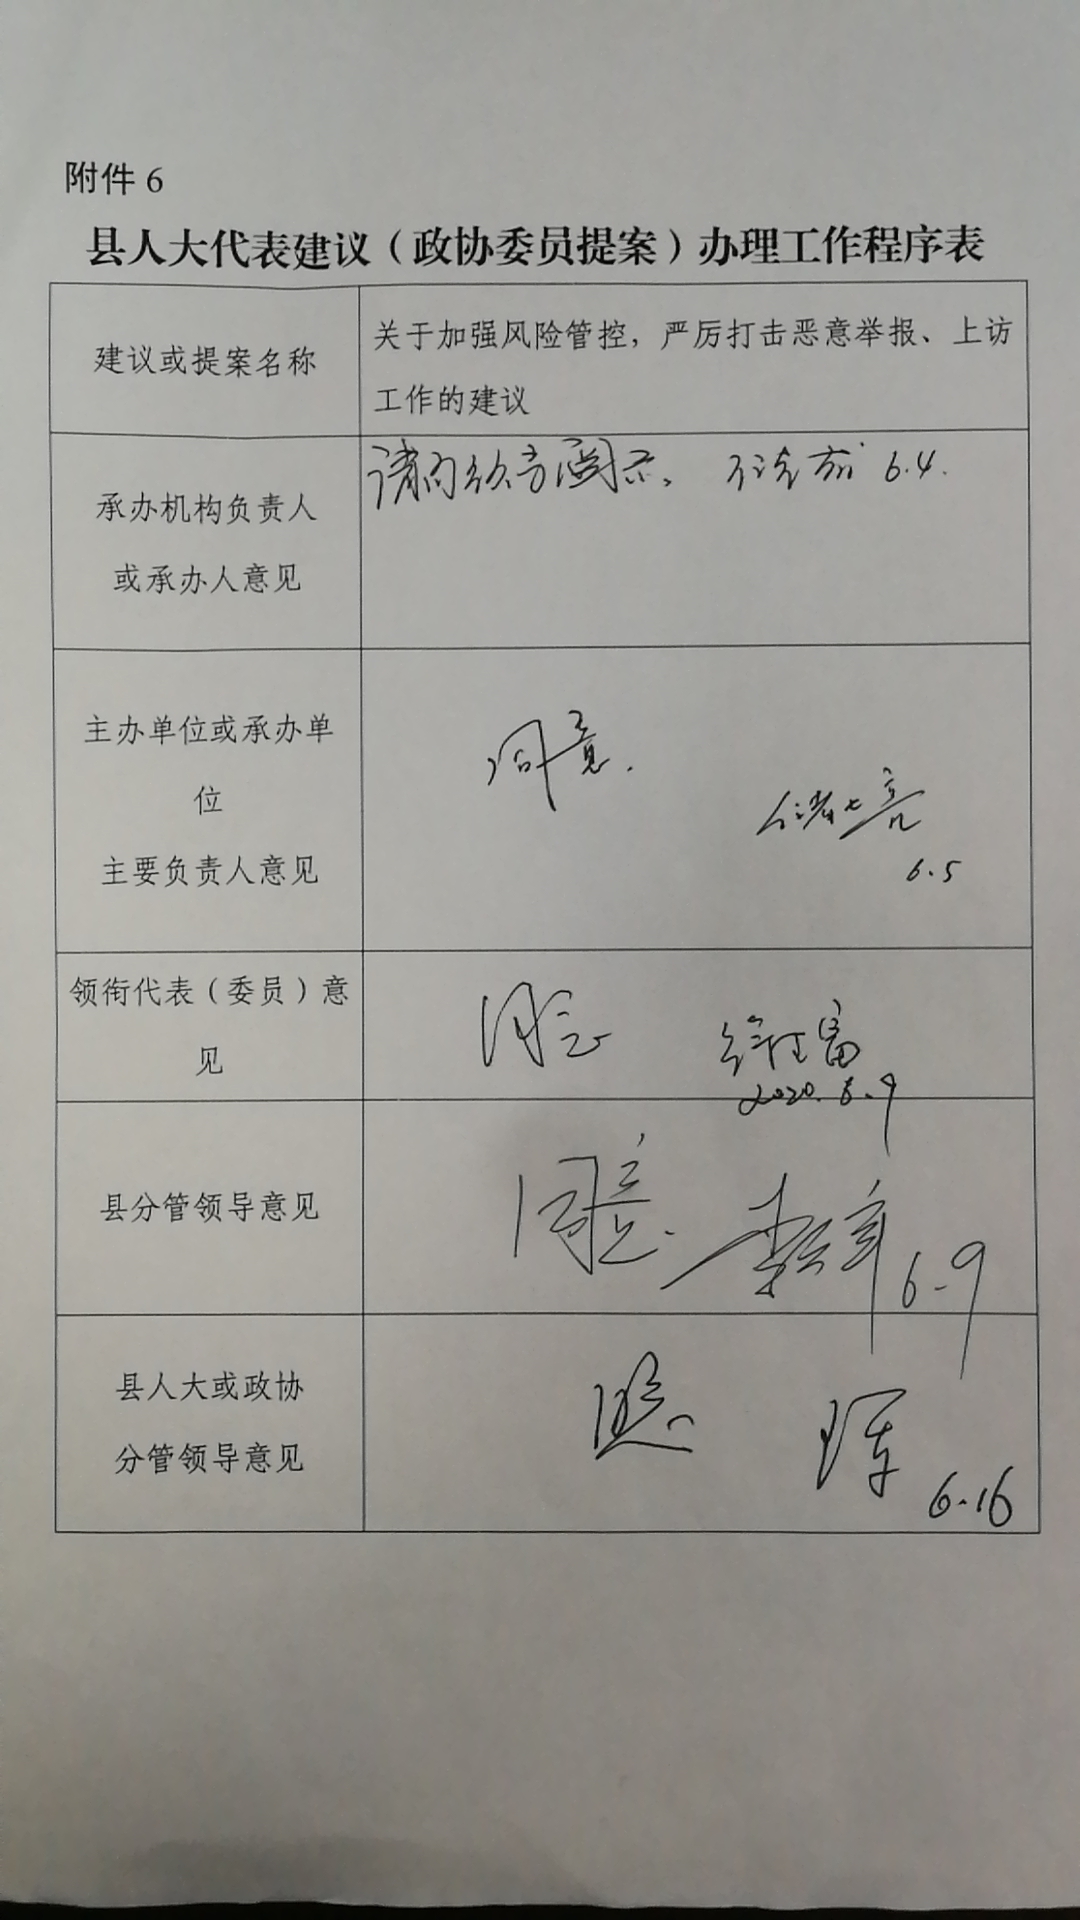 附件 6
县人大代表建议（政协委员提案）办理工作程序表
建议或提案名称
关于加强风险管控，严厉打击恶意举报、上访
工作的建议
承办机构负责人
或承办人意见
请 阅示。 6.4.
主办单位或承办单
位
主要负责人意见
同意.
6.5
领衔代表（委员）意
见
同意
2020.6.9
县分管领导意见
同意.
6.9
县人大或政协
分管领导意见
同意
6.16